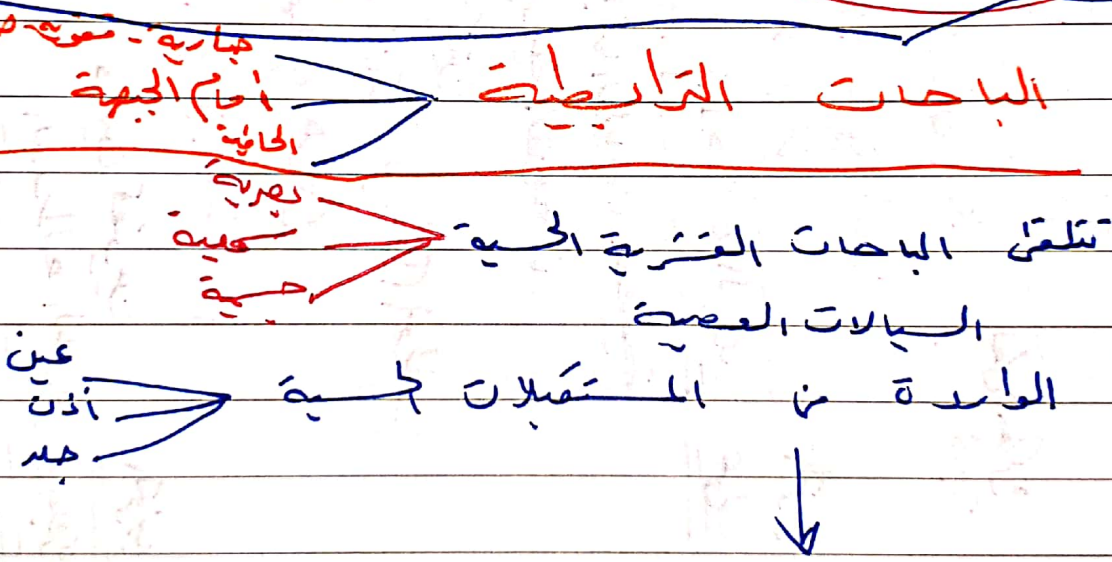 الباحات الترابطية
جدارية - قفوية -
أمام الجبهة
الحافية
تتلقى الباحات القشرية الحسية
بصرية
سمعية
جسمية
السيالات العصبية
الواردة من المستقبلات الحسية
عين
أذن
جلد